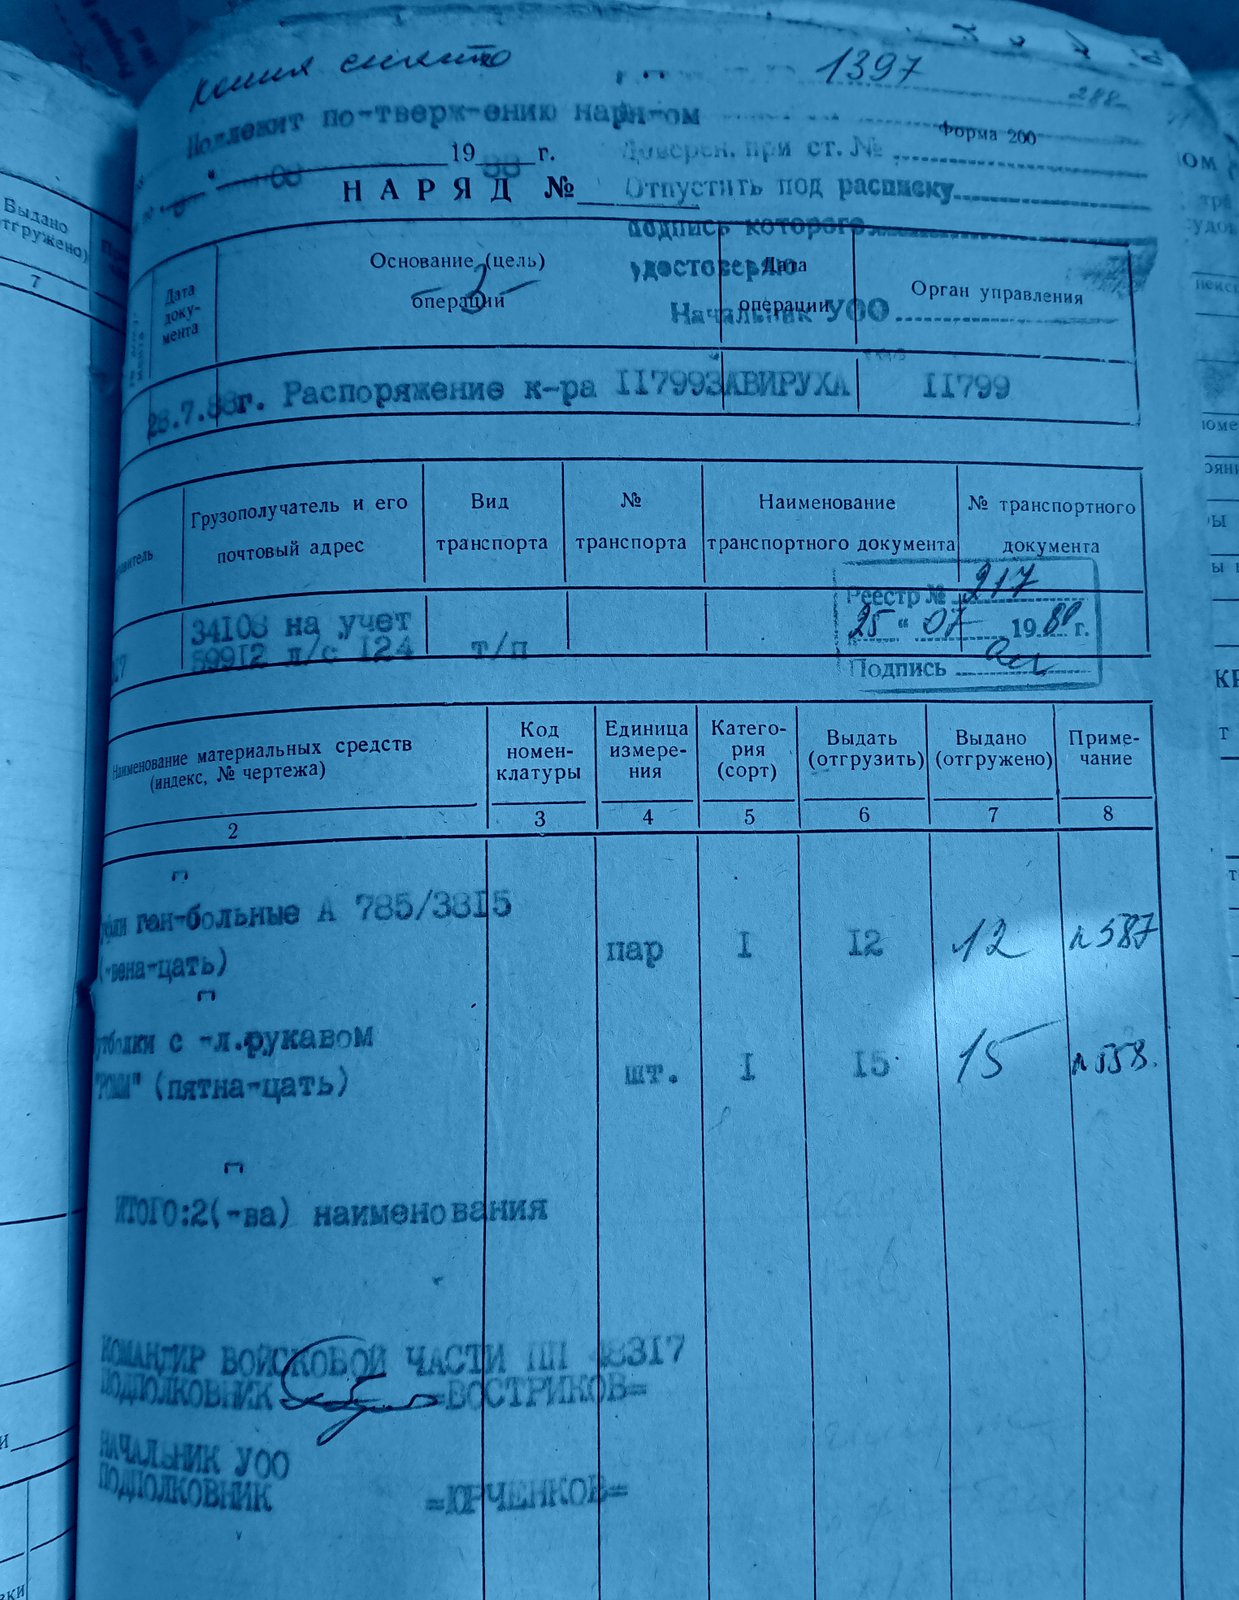 копия снята
1397
288
По-лежит по-твержению наря-ом
Форма 200
19 88 г.
Доверен. при ст. №
НАРЯД №
Отпустить под расписку
подпись которого
удостоверяю
Начальник УОО
Дата доку- мента
Основание (цель) операции
3
Дата операции
Орган управления
28.7.88г. Распоряжение к-ра II799 ЗАВИРУХА II799
Грузополучатель и его почтовый адрес
Вид транспорта
№ транспорта
Наименование транспортного документа
№ транспортного документа
34I08 на учет
599I2 л/с I24
т/п
Реестр № 217
25 " 07 19 88 г.
Подпись
Наименование материальных средств (индекс, № чертежа)
Код номен- клатуры
Единица измере- ния
Катего- рия (сорт)
Выдать (отгрузить)
Выдано (отгружено)
Приме- чание
2 3 4 5 6 7 8
ган-больные А 785/38I5
(-вена-цать)
пар I I2 12 п587
футболки с -л.рукавом
(пятна-цать)
шт. I I5 15 п558.
ИТОГО:2(-ва) наименования
КОМАНДИР ВОЙСКОВОЙ ЧАСТИ ПП 48317
ПОДПОЛКОВНИК =ВОСТРИКОВ=
НАЧАЛЬНИК УОО
ПОДПОЛКОВНИК =ЮРЧЕНКОВ=
Выдано
отгружено)
7